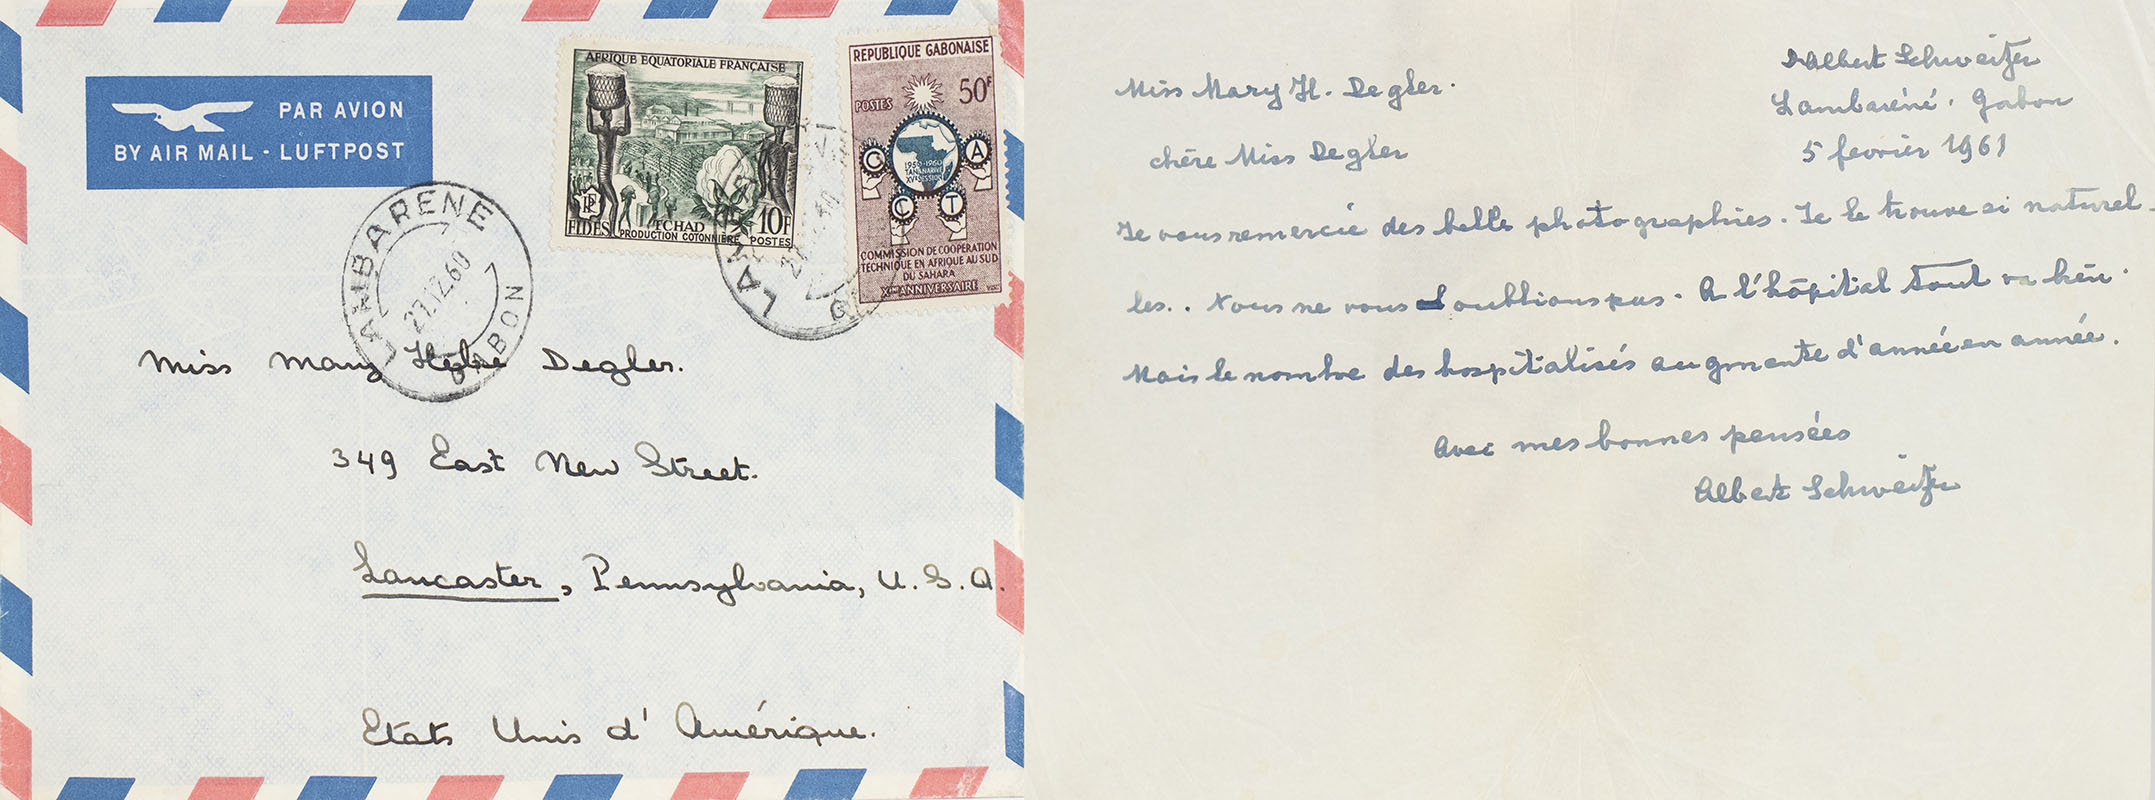 PAR AVION
BY AIR MAIL - LUFTPOST
AFRIQUE EQUATORIALE FRANÇAISE
FIDES
TCHAD
PRODUCTION COTONNIÈRE
10F
POSTES
REPUBLIQUE GABONAISE
POSTES
50F
C
A
1950-1960
TANANARIVE
XVe SESSION
C
T
COMMISSION DE COOPERATION
TECHNIQUE EN AFRIQUE AU SUD
DU SAHARA
XEME ANNIVERSAIRE
LAMBARENE
27.12.60
GABON
Miss Mary Helse Degler.
349 East New Street.
Lancaster, Pennsylvania, U.S.A.
Etats Unis d'Amérique.
Albert Schweitzer
Lambaréné. Gabon
5 fevrier 1961
Miss Mary H. Degler.
chère Miss Degler
Je vous remercie des belle photographies. Je le trouve si naturel-
les.. Nous ne vous oublions pas. A l'hôpital tout va bien.
Mais le nombre des hospitalisés augmente d'année en année.
Avec mes bonnes pensées
Albert Schweitzer